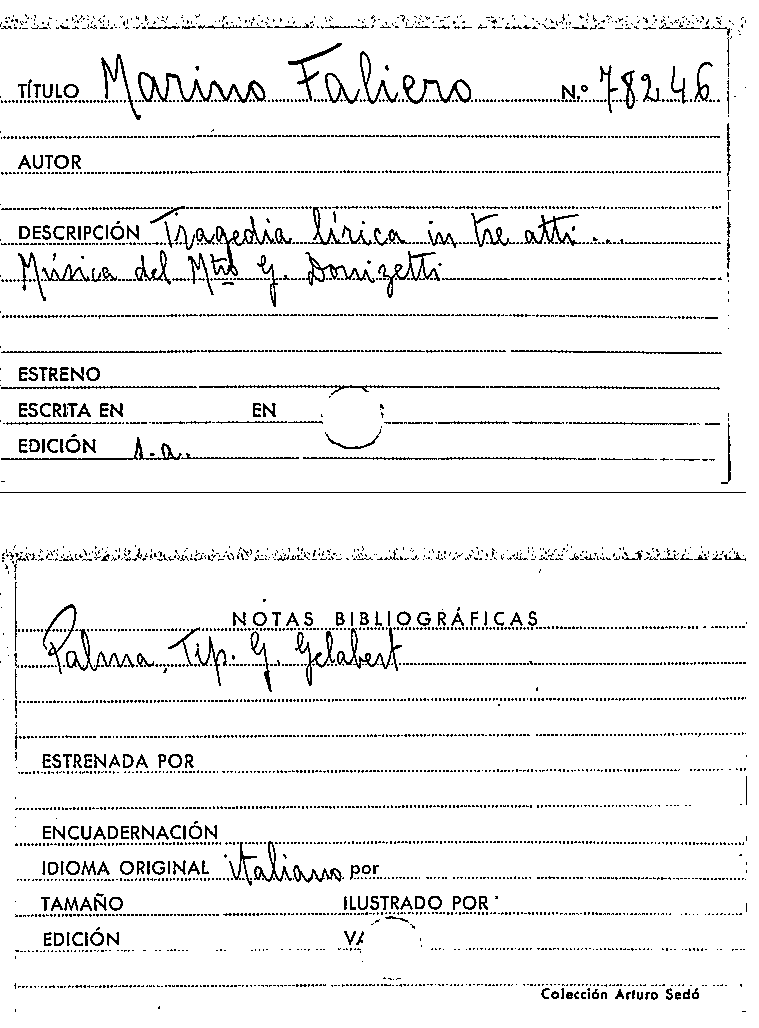 TÍTULO Marino Faliero N.º 78246
AUTOR
DESCRIPCIÓN Tragedia lírica in tre atti ...
Música del Mtro G. Donizetti
ESTRENO
ESCRITA EN EN
EDICIÓN s.a.
NOTAS BIBLIOGRÁFICAS
Palma, Tip. G. Gelabert
ESTRENADA POR
ENCUADERNACIÓN
IDIOMA ORIGINAL italiano por
TAMAÑO ILUSTRADO POR
EDICIÓN
Colección Arturo Sedó